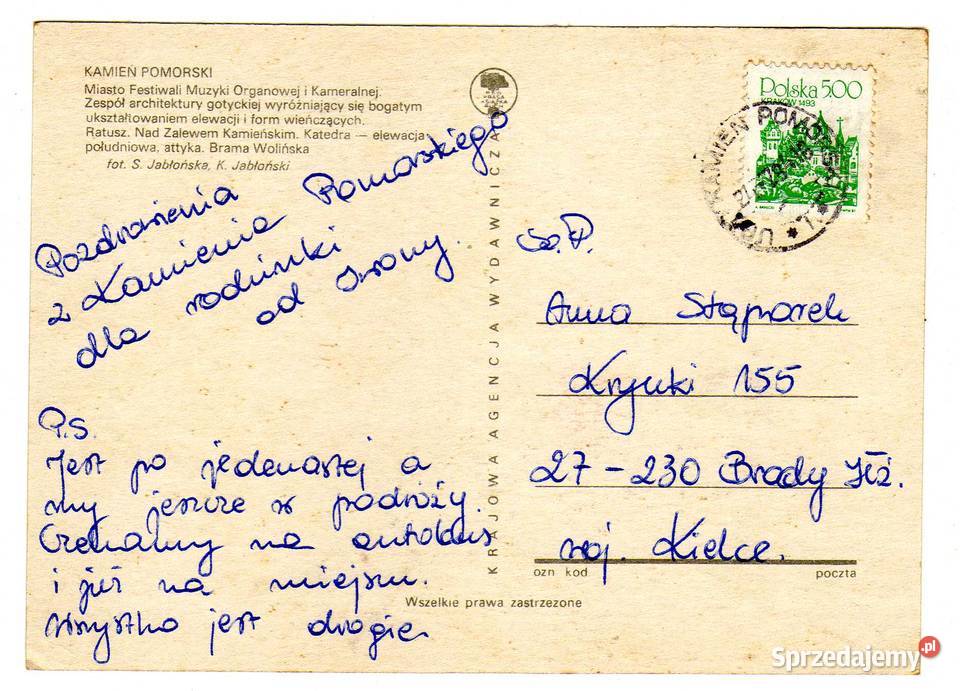 KAMIEŃ POMORSKI
Miasto Festiwali Muzyki Organowej i Kameralnej.
Zespół architektury gotyckiej wyróżniający się bogatym
ukształtowaniem elewacji i form wieńczących.
Ratusz. Nad Zalewem Kamieńskim. Katedra — elewacja
południowa, attyka. Brama Wolińska
fot. S. Jabłońska, K. Jabłoński
Pozdrowienia
z Kamienia Pomorskiego
dla rodzinki
od Iwony.
P.S.
Jest po jedenastej a
my jeszcze w podróży.
Czekamy na autobus
i już na miejscu.
Wszystko jest drogie.
KRAJOWA AGENCJA WYDAWNICZA
Polska 5.00
KRAKÓW 1493
KAMIEŃ POMORSKI
Sz.P.
Anna Stąporek
Krynki 155
27-230 Brody Iłż.
woj. Kielce.
ozn kod
poczta
Wszelkie prawa zastrzeżone
Sprzedajemy.pl